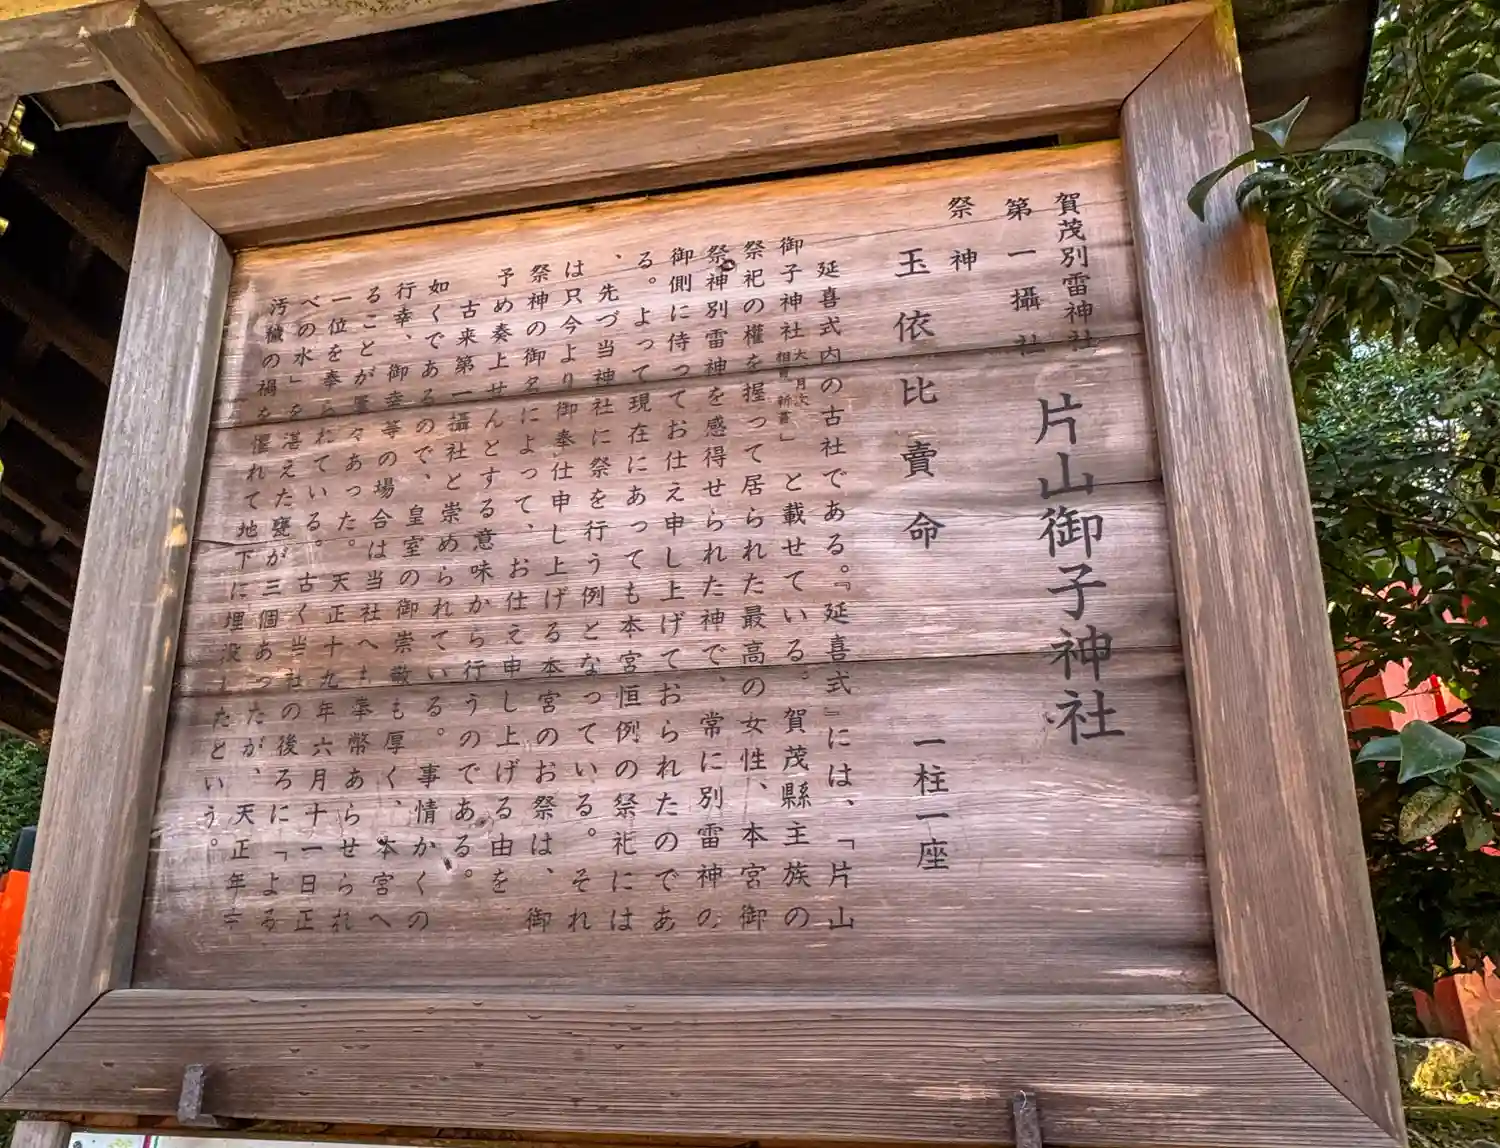 賀茂別雷神社
第一攝社
片山御子神社
祭神
玉依比賣命
一柱一座
延喜式内の古社である。『延喜式』には、「片山
御子神社大 月次
相嘗 新嘗」と載せている。賀茂縣主族の
祭祀の權を握って居られた最高の女性、本宮御
祭神別雷神を感得せられた神で、常に別雷神の
御側に侍ってお仕え申し上げておられたのであ
る。よって現在にあっても本宮恒例の祭祀には
、先づ当神社に祭を行う例となっている。それ
は只今より御奉仕申し上げる本宮のお祭は、御
祭神の御名によって、お仕え申し上げる由を
予め奏上せんとする意味から行うのである。
古来第一攝社と崇められている。事情かくの
如くであるので、皇室の御崇敬も厚く、本宮へ
行幸、御幸等の場合は当社へも奉幣あらせられ
ることが屡々あった。天正十九年六月十一日正
一位を奉られている。古く当社の後ろに「よる
べの水」を湛えた甕が三個あったが、天正年中
汚穢の禍を懼れて地下に埋没したという。